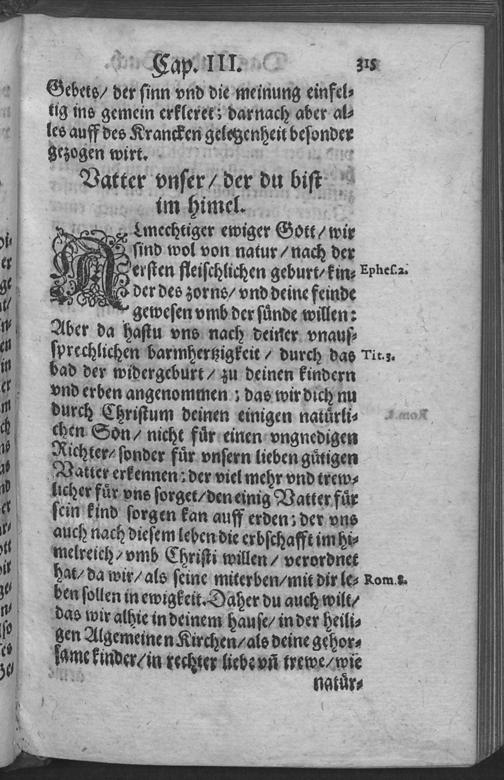 Cap. III. 315
Gebets/ der sinn vnd die meinung einfel-
tig ins gemein erkleret; darnach aber al-
les auff des Krancken gelegenheit besonder
gezogen wirt.
Vatter vnser/ der du bist
im himel.
ALmechtiger ewiger Gott/ wir
sind wol von natur/ nach der
ersten fleischlichen geburt/ kin-
der des zorns/ vnd deine feinde
gewesen vmb der sünde willen:
Aber da hastu vns nach deiner vnaus-
sprechlichen barmhertzigkeit/ durch das
bad der widergeburt/ zu deinen kindern
vnd erben angenommen; das wir dich nu
durch Christum deinen einigen natürli-
chen Son/ nicht für einen vngnedigen
Richter/ sonder für vnsern lieben gütigen
Vatter erkennen; der viel mehr vnd trew-
licher für vns sorget/ den einig Vatter für
sein kind sorgen kan auff erden; der vns
auch nach diesem leben die erbschafft im hi-
melreich/ vmb Christi willen/ verordnet
hat/ da wir/ als seine miterben/ mit dir le-
ben sollen in ewigkeit. Daher du auch wilt/
das wir alhie in deinem hause/ in der heili-
gen Algemeinen Kirchen/ als deine gehor-
same kinder/ in rechter liebe vñ trewe/ wie
natür-
Ephes.2.
Tit.3.
Rom.8.